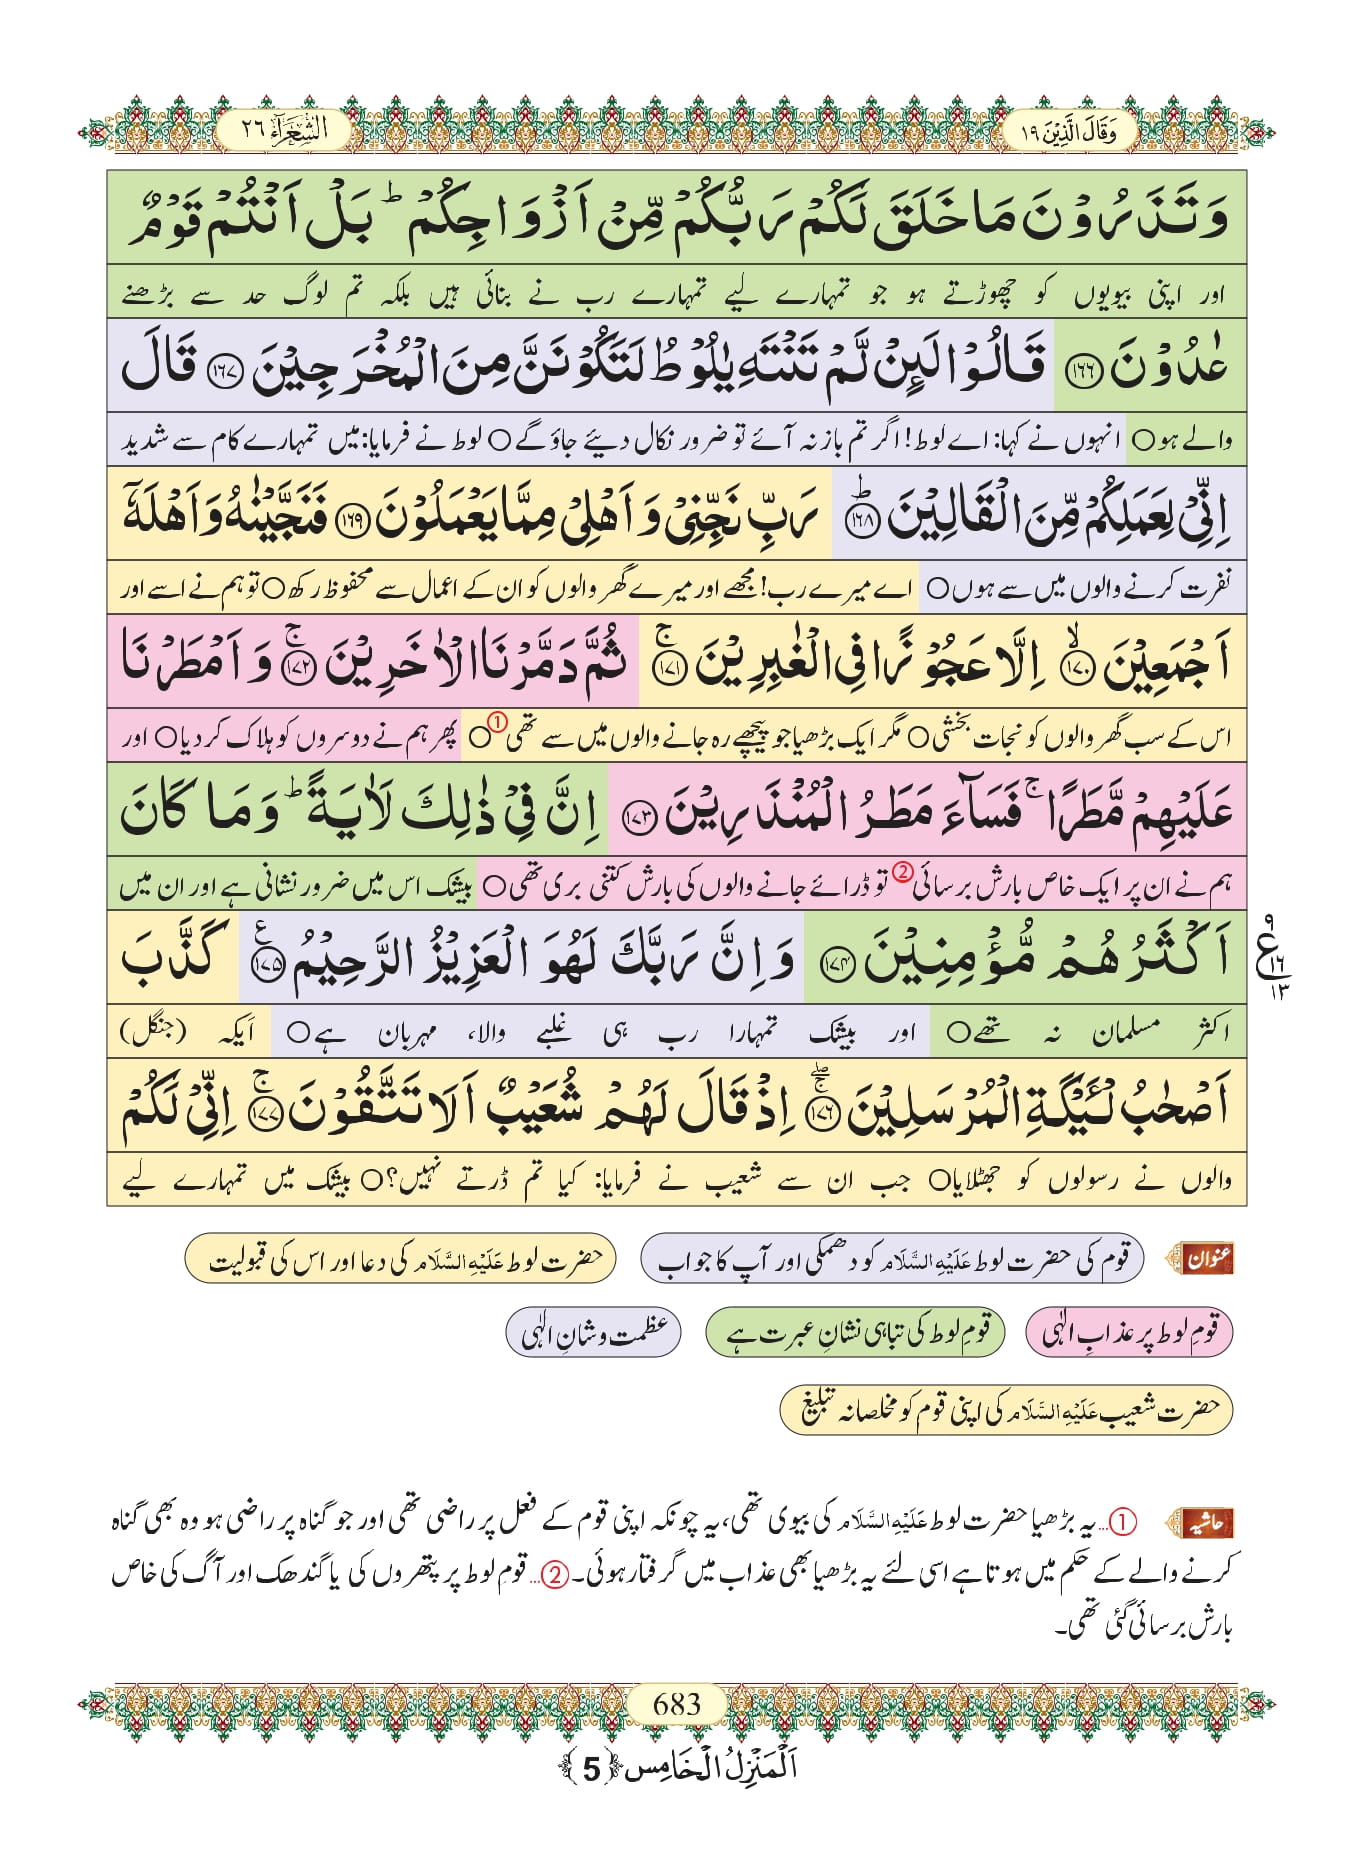 وَقَالَ الَّذِيْنَ ١٩
الشُّعَرَآء ٢٦
وَتَذَرُوْنَ مَا خَلَقَ لَكُمْ رَبُّكُمْ مِّنْ اَزْوَاجِكُمْ ؕ بَلْ اَنْتُمْ قَوْمٌ
اور اپنی بیویوں کو چھوڑتے ہو جو تمہارے لیے تمہارے رب نے بنائی ہیں بلکہ تم لوگ حد سے بڑھنے
عٰدُوْنَ ﴿۱۶۶﴾ قَالُوْا لَىِٕنْ لَّمْ تَنْتَهِ یٰلُوْطُ لَتَكُوْنَنَّ مِنَ الْمُخْرَجِیْنَ ﴿۱۶۷﴾ قَالَ
والے ہو○ انہوں نے کہا: اے لوط! اگر تم باز نہ آئے تو ضرور نکال دیئے جاؤ گے○ لوط نے فرمایا: میں تمہارے کام سے شدید
اِنِّیْ لِعَمَلِكُمْ مِّنَ الْقَالِیْنَ ؕ﴿۱۶۸﴾ رَبِّ نَجِّنِیْ وَ اَهْلِیْ مِمَّا یَعْمَلُوْنَ ﴿۱۶۹﴾ فَنَجَّیْنٰهُ وَ اَهْلَهٗۤ
نفرت کرنے والوں میں سے ہوں○ اے میرے رب! مجھے اور میرے گھر والوں کو ان کے اعمال سے محفوظ رکھ○ تو ہم نے اسے اور
اَجْمَعِیْنَ ۙ﴿۱۷۰﴾ اِلَّا عَجُوْزًا فِی الْغٰبِرِیْنَ ۚ﴿۱۷۱﴾ ثُمَّ دَمَّرْنَا الْاٰخَرِیْنَ ۚ﴿۱۷۲﴾ وَ اَمْطَرْنَا
اس کے سب گھر والوں کو نجات بخشی○ مگر ایک بڑھیا جو پیچھے رہ جانے والوں میں سے تھی①○ پھر ہم نے دوسروں کو ہلاک کر دیا○ اور
عَلَیْهِمْ مَّطَرًا ۚ فَسَآءَ مَطَرُ الْمُنْذَرِیْنَ ﴿۱۷۳﴾ اِنَّ فِیْ ذٰلِكَ لَاٰیَةً ؕ وَ مَا كَانَ
ہم نے ان پر ایک خاص بارش برسائی② تو ڈرائے جانے والوں کی بارش کتنی بری تھی○ بیشک اس میں ضرور نشانی ہے اور ان میں
اَكْثَرُهُمْ مُّؤْمِنِیْنَ ﴿۱۷۴﴾ وَ اِنَّ رَبَّكَ لَهُوَ الْعَزِیْزُ الرَّحِیْمُ ﴿۱۷۵﴾ ع كَذَّبَ
٩ ع ١٦ ١٣
اکثر مسلمان نہ تھے○ اور بیشک تمہارا رب ہی غلبے والا، مہربان ہے○ اَیکہ (جنگل)
اَصْحٰبُ لْــٴَـیْكَةِ الْمُرْسَلِیْنَ ۚۖ﴿۱۷۶﴾ اِذْ قَالَ لَهُمْ شُعَیْبٌ اَلَا تَتَّقُوْنَ ۚ﴿۱۷۷﴾ اِنِّیْ لَكُمْ
والوں نے رسولوں کو جھٹلایا○ جب ان سے شعیب نے فرمایا: کیا تم ڈرتے نہیں؟○ بیشک میں تمہارے لیے
عنوان قوم کی حضرت لوط عَلَیْهِ السَّلَام کو دھمکی اور آپ کا جواب حضرت لوط عَلَیْهِ السَّلَام کی دعا اور اس کی قبولیت
قومِ لوط پر عذابِ الٰہی قومِ لوط کی تباہی نشانِ عبرت ہے عظمت و شانِ الٰہی
حضرت شعیب عَلَیْهِ السَّلَام کی اپنی قوم کو مخلصانہ تبلیغ
حاشیہ ①... یہ بڑھیا حضرت لوط عَلَیْهِ السَّلَام کی بیوی تھی، یہ چونکہ اپنی قوم کے فعل پر راضی تھی اور جو گناہ پر راضی ہو وہ بھی گناہ
کرنے والے کے حکم میں ہوتا ہے اسی لئے یہ بڑھیا بھی عذاب میں گرفتار ہوئی۔ ②... قومِ لوط پر پتھروں کی یا گندھک اور آگ کی خاص
بارش برسائی گئی تھی۔
683
اَلْمَنْزِلُ الْخَامِس ﴿5﴾